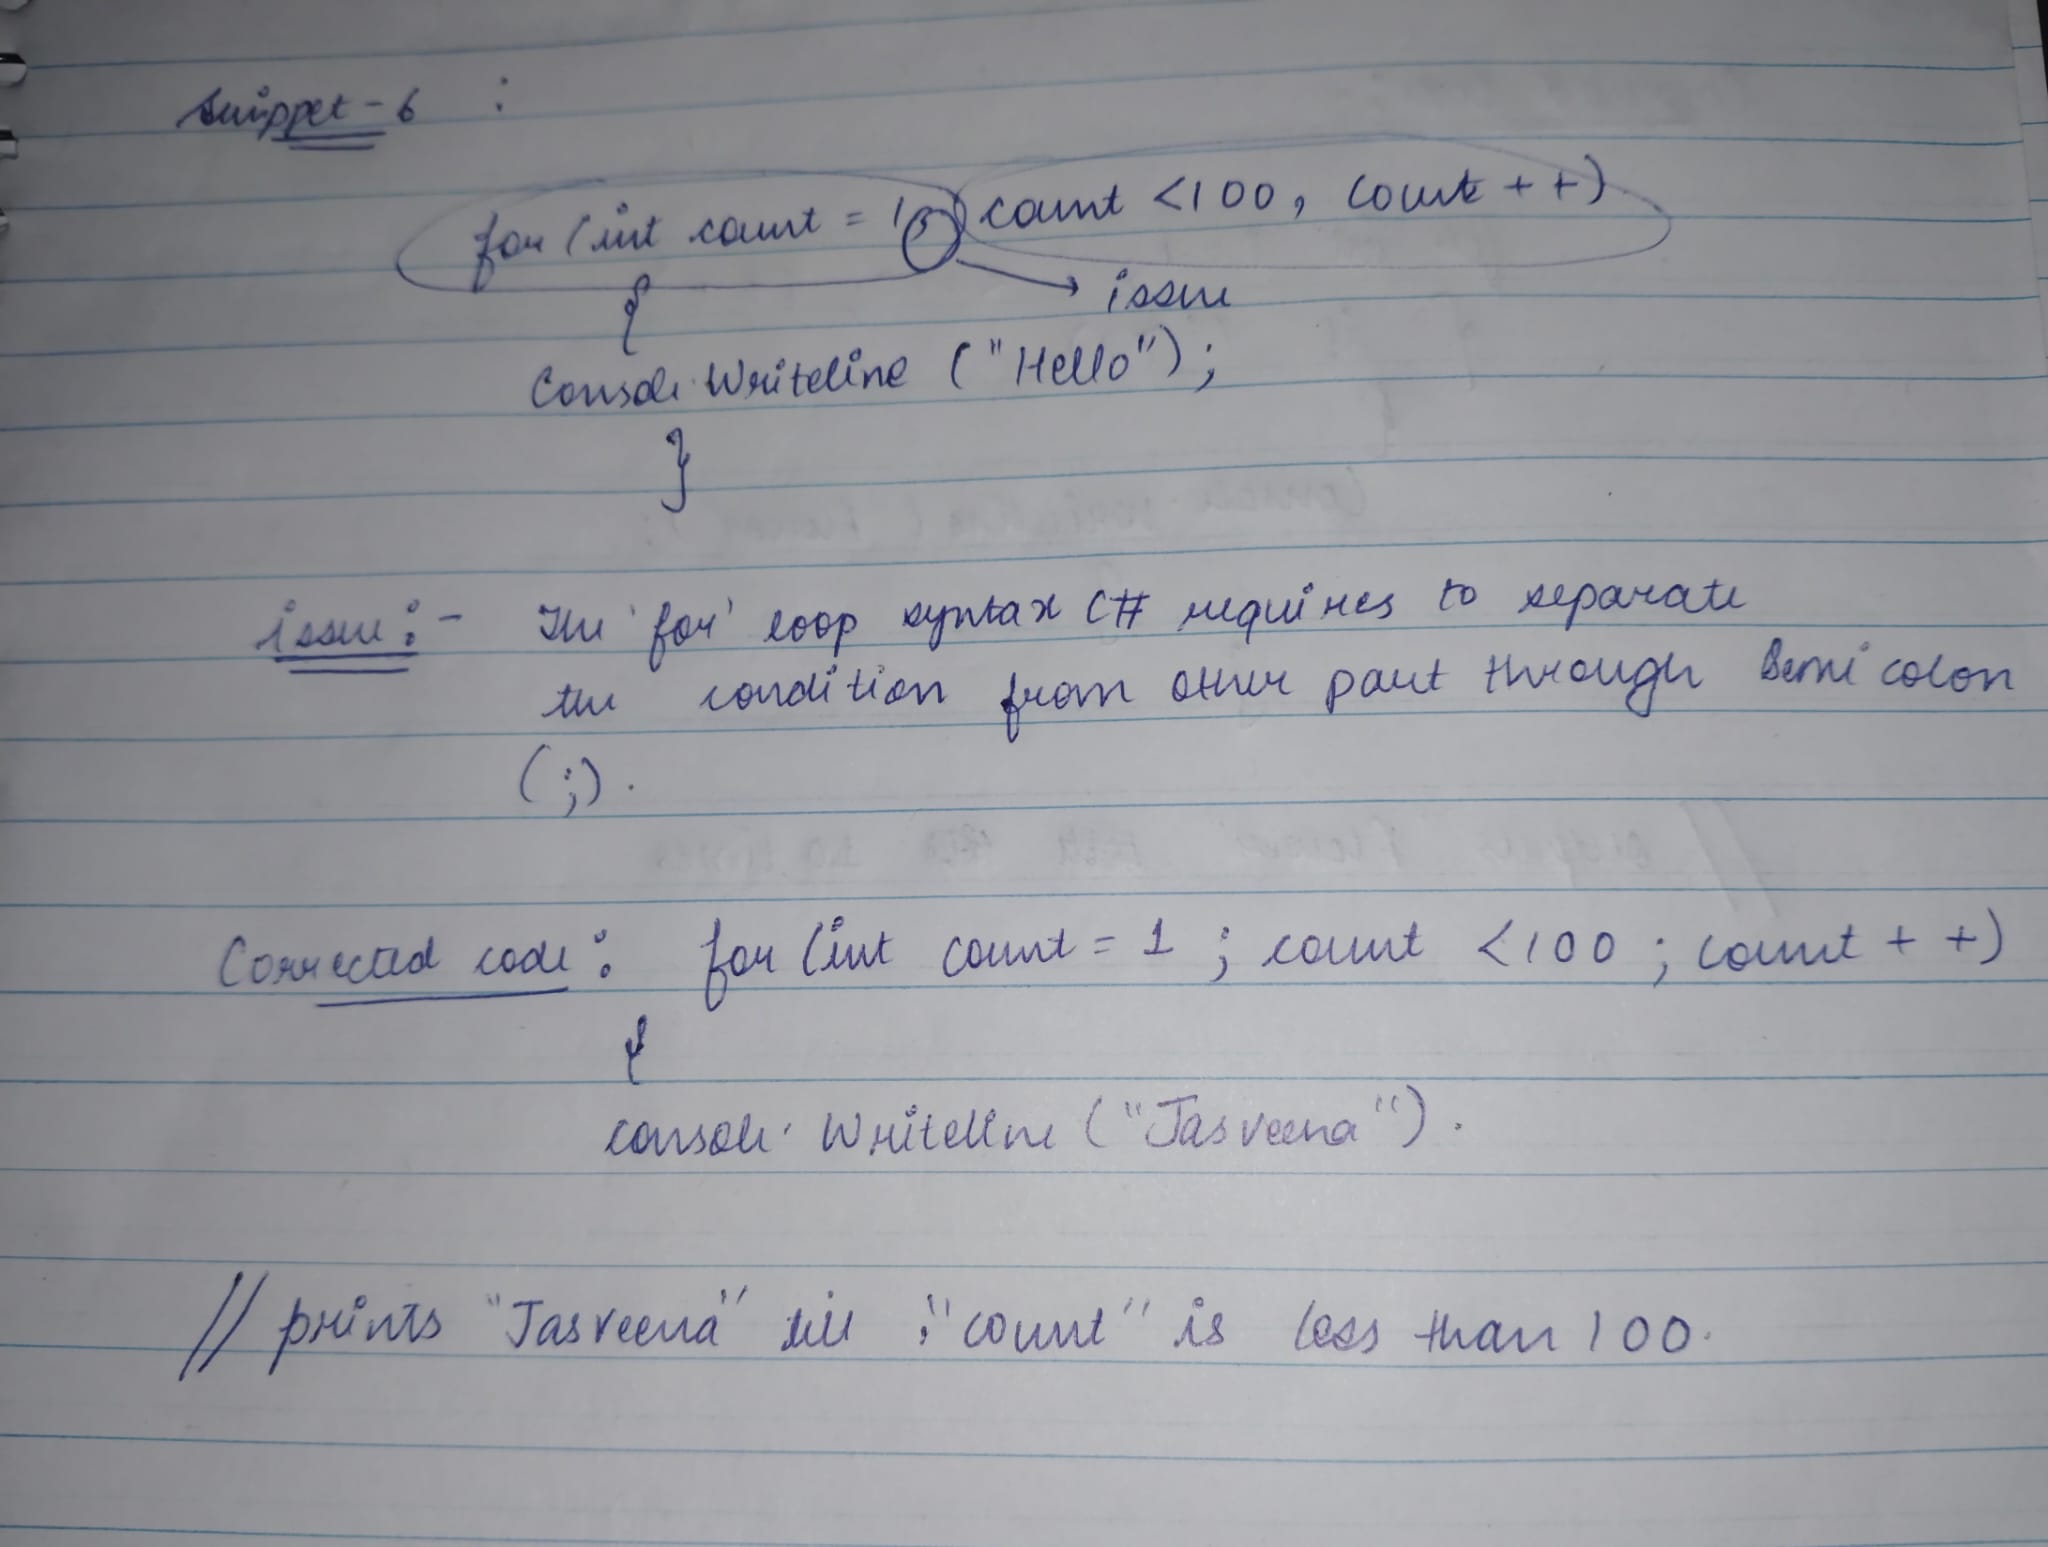 Snippet - 6 :
for (int count = 1, count <100, count ++)
issue
{
Console.Writeline ("Hello");
}
issue :- The 'for' loop syntax C# requires to separate
the condition from other part through Semi colon
(;).
Corrected code : for (int count = 1 ; count <100 ; count ++)
{
console. Writeline ("Jasveena").
// prints "Jasveena" till "count" is less than 100.